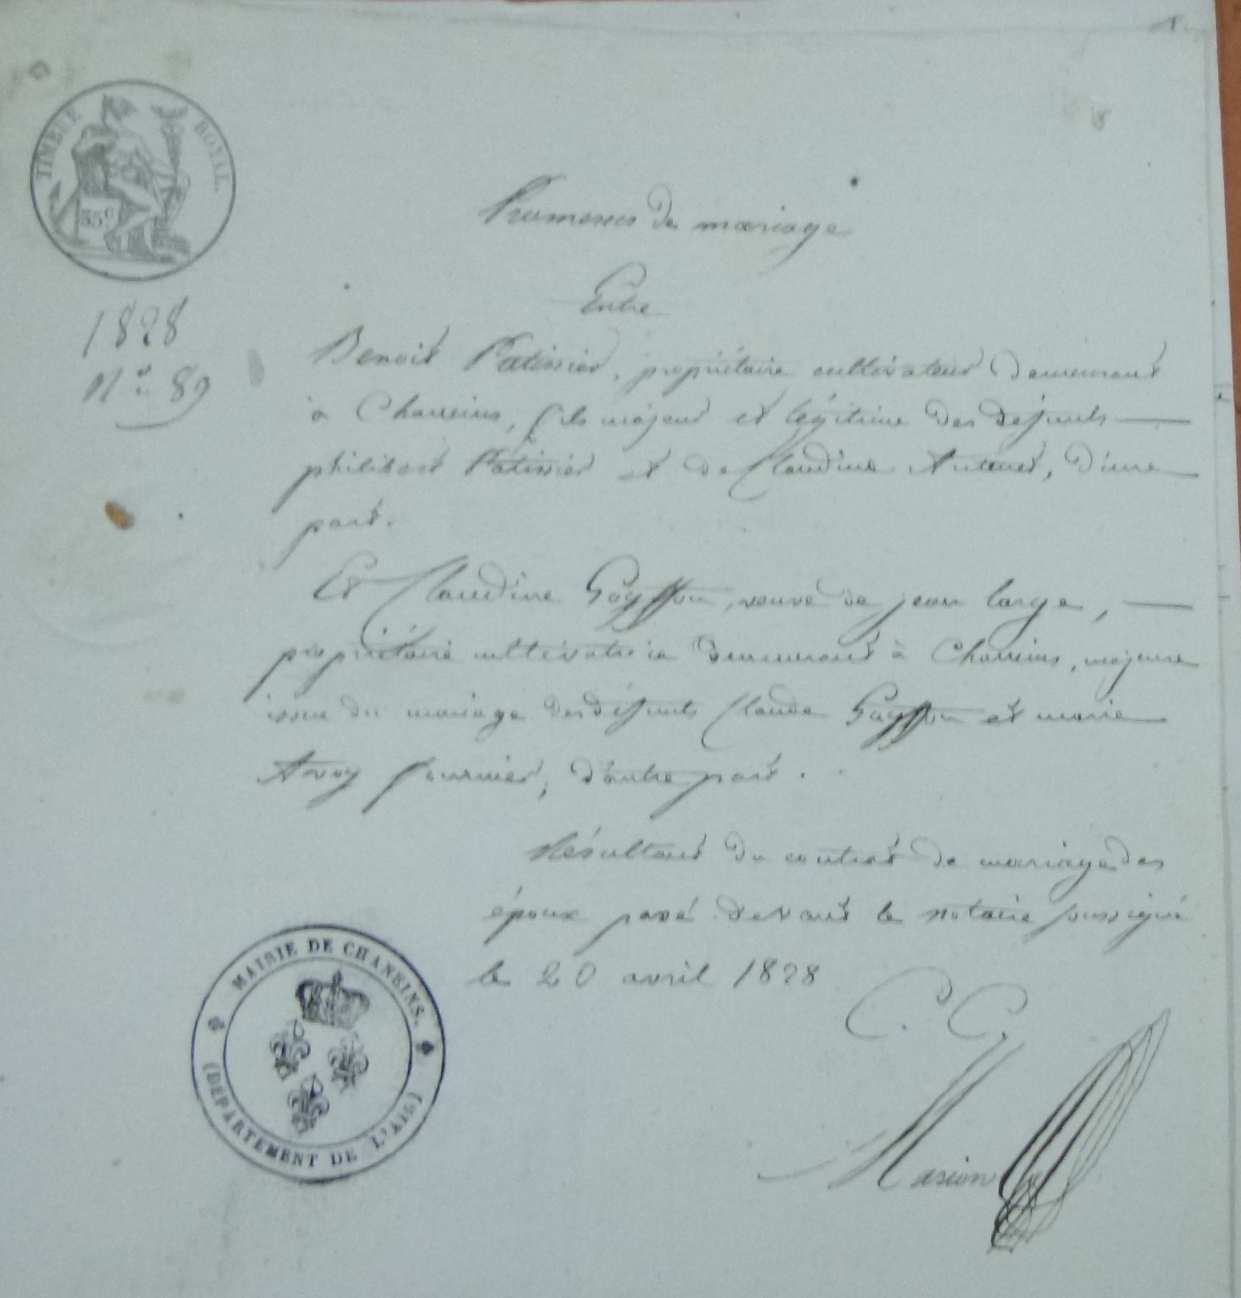 TIMBRE ROYAL.
35 c
1828
N° 89
Promesses de mariage
Entre
Benoit Patissier, propriétaire cultivateur demeurant
à Chaneins, fils majeur et légitime des défunts
philibert Patissier et de Claudine Autaner, d'une
part.
Et Claudine Goyffon, veuve de jean large,
propriétaire cultivatrice demeurant à Chaneins, majeure
issue du mariage des défunts Claude Goyffon et marie
fournier, d'autre part.
Résultant du contrat de mariage des
époux passé devant le notaire soussigné
le 20 avril 1828
C. C.
Marion
MAIRIE DE CHANEINS.
(DEPARTEMENT DE L'AIN)